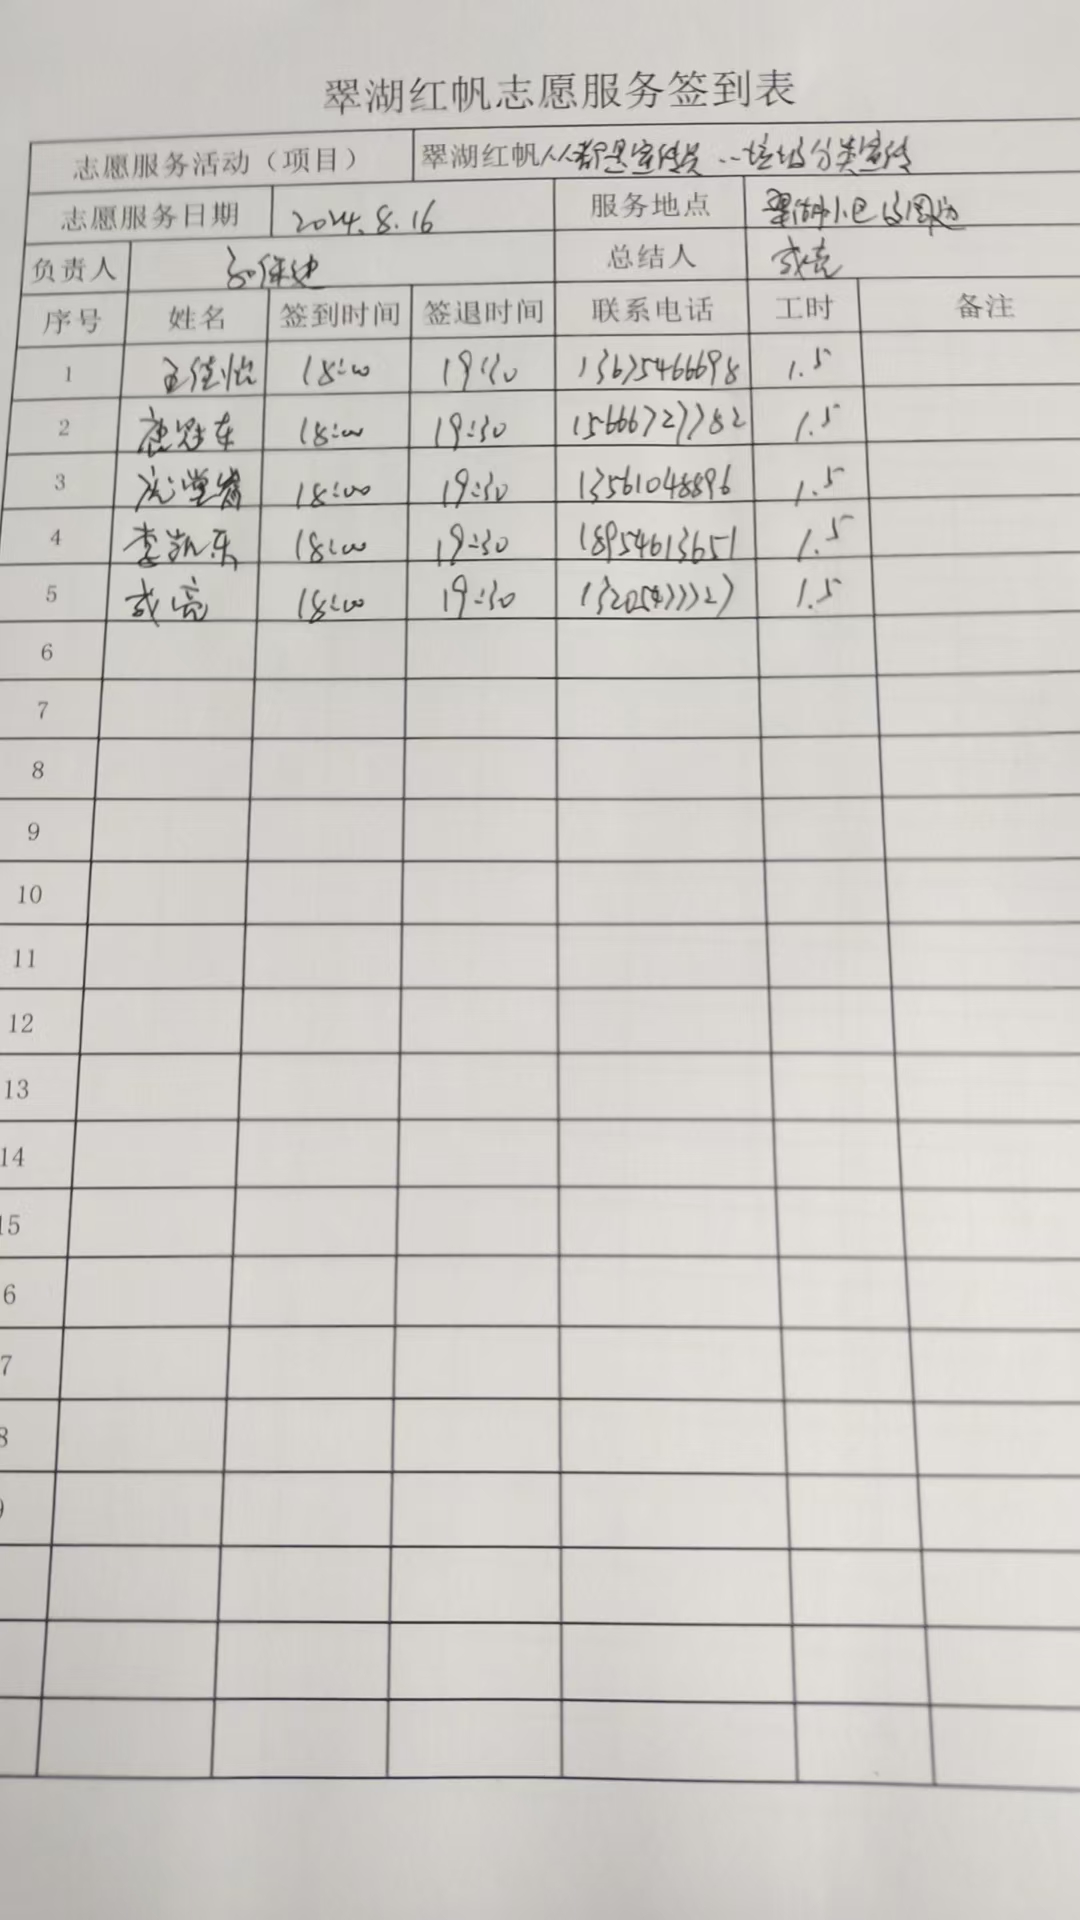 翠湖红帆志愿服务签到表
志愿服务活动（项目） 翠湖红帆人人都是宣传员…垃圾分类宣传
志愿服务日期 2024.8.16 服务地点 翠湖小区及周边
负责人 总结人 成亮
序号 姓名 签到时间 签退时间 联系电话 工时 备注
1 王佳怡 18:00 19:30 13675466698 1.5
2 唐冠东 18:00 19:30 15666727782 1.5
3 18:00 19:30 13561048896 1.5
4 李凯乐 18:00 19:30 18954613651 1.5
5 成亮 18:00 19:30 1.5
6
7
8
9
10
11
12
13
14
15
6
7
8
9